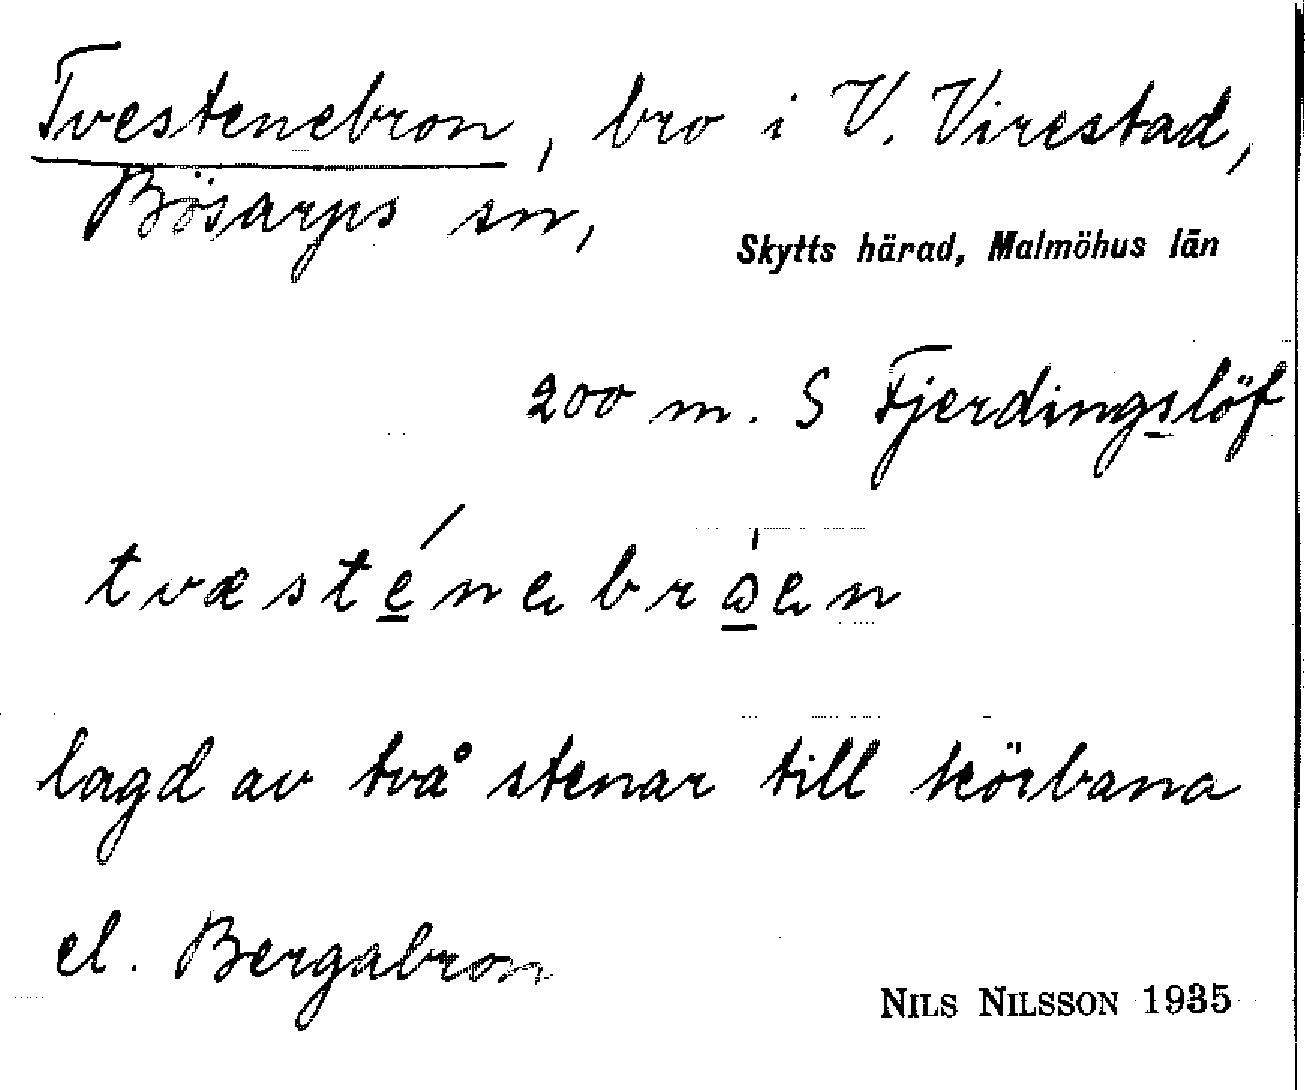 Tvestenebron, bro i V. Virestad,
Bösarps sn,
Skytts härad, Malmöhus län
200 m. S Fjerdingslöf
tvæsténebrɷ́en
lagd av två stenar till körbana
el. Bergabron
NILS NILSSON 1935